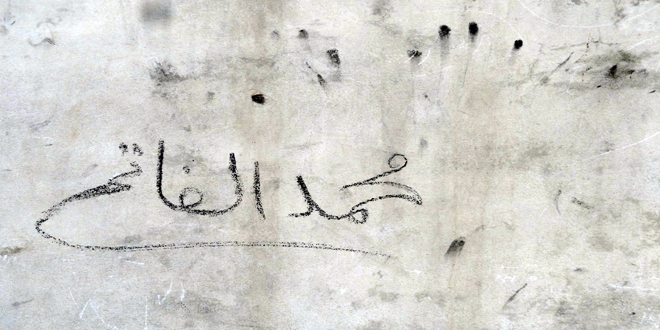 محمد الفاتح